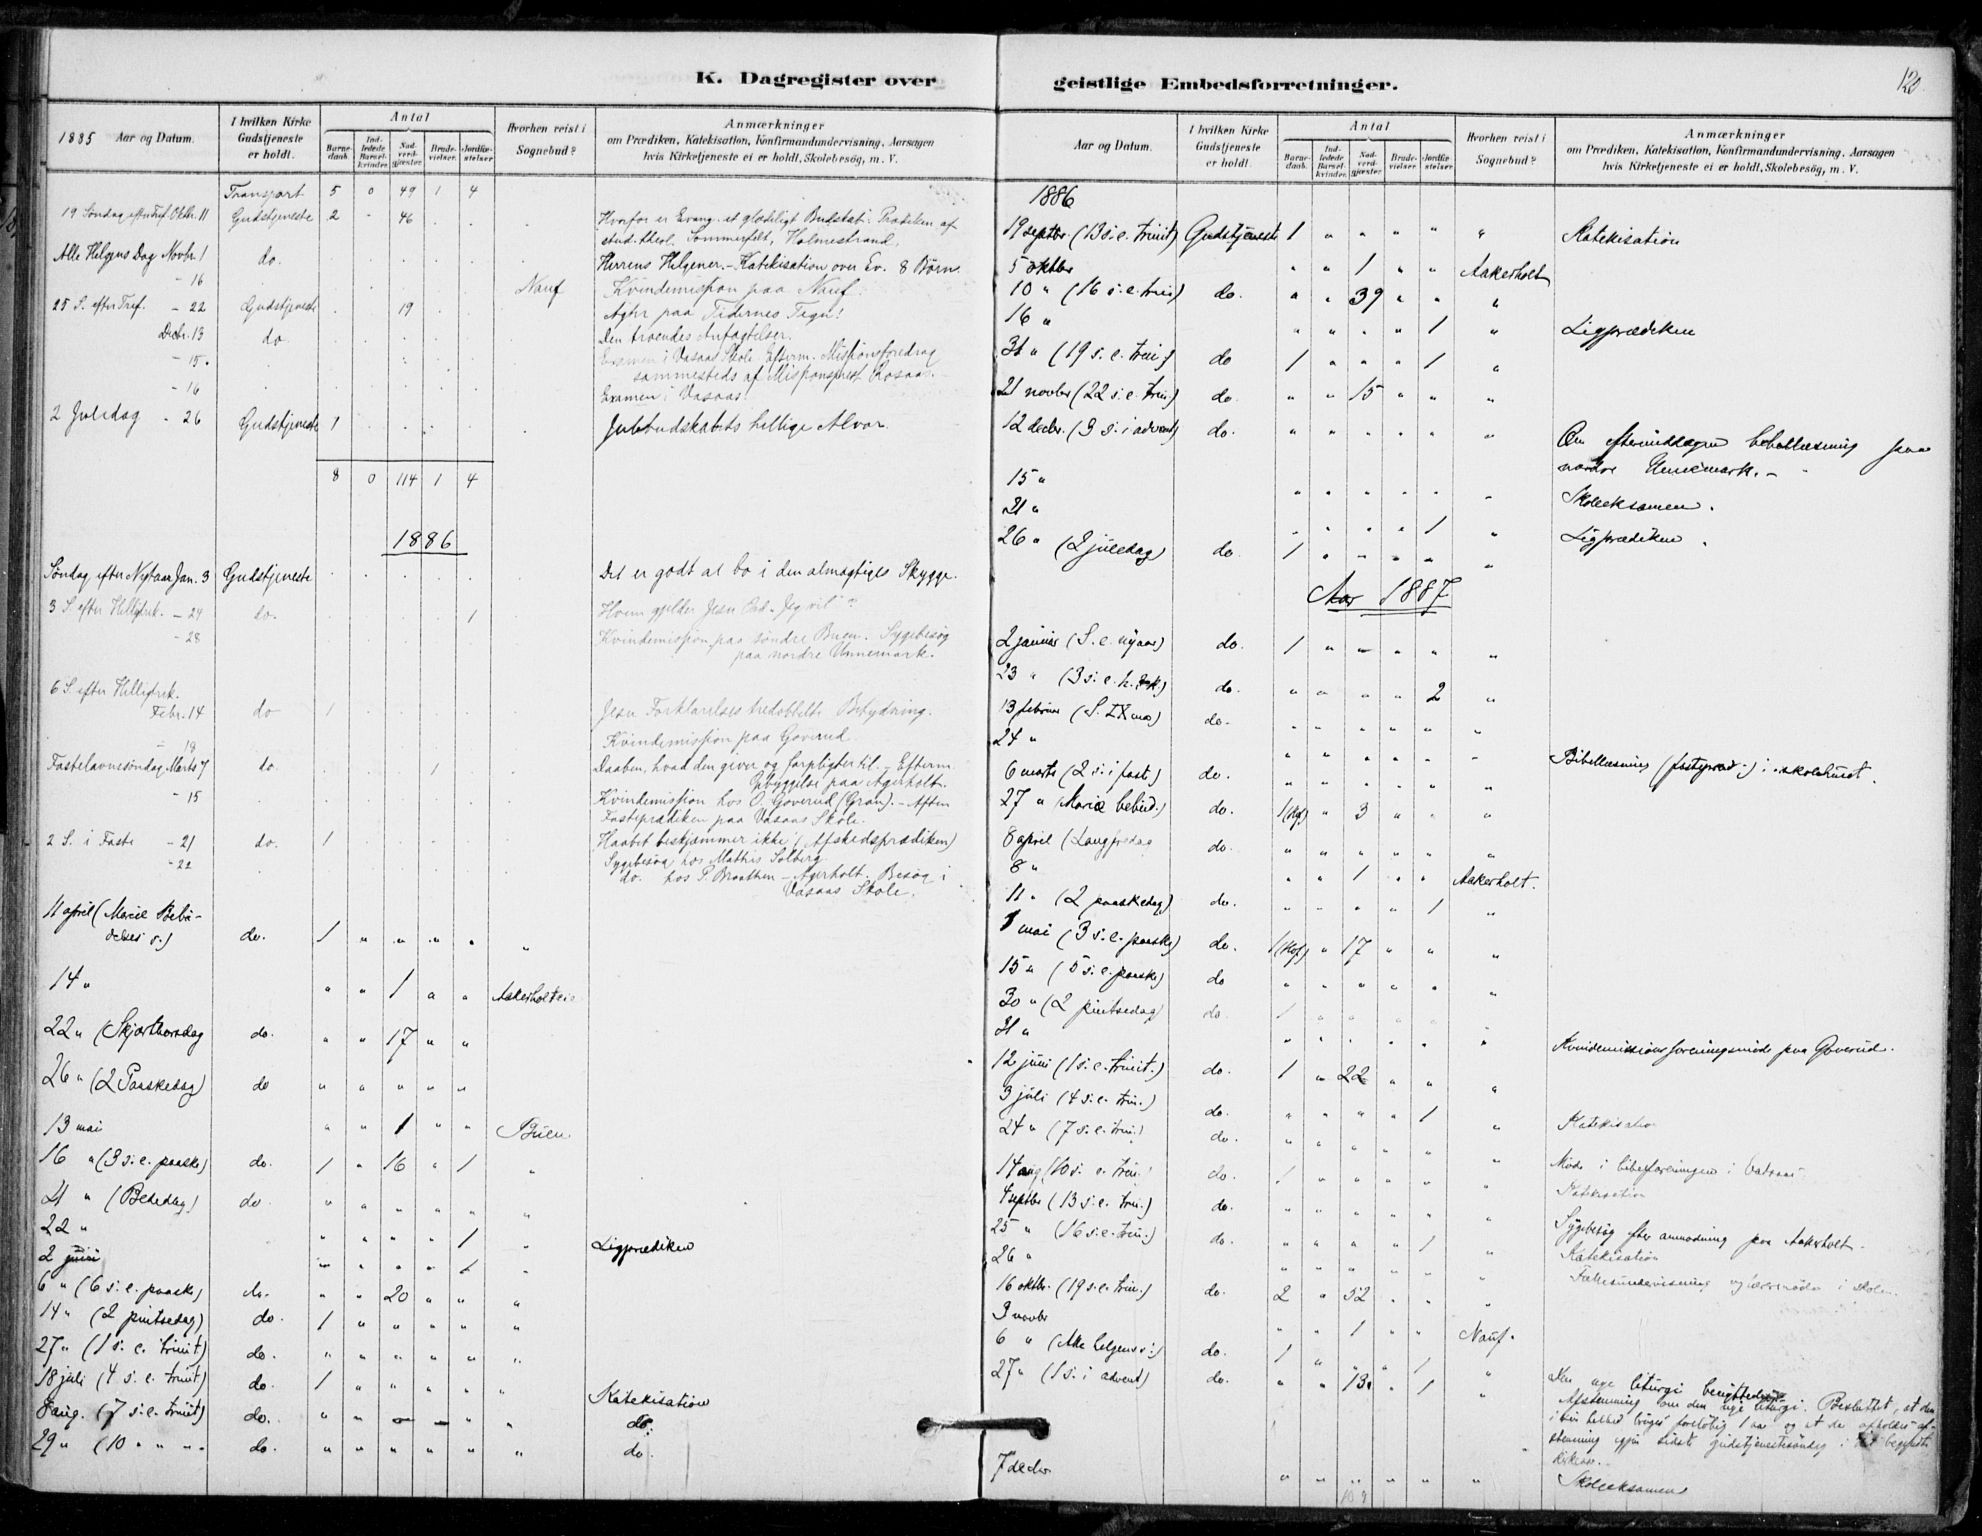 K. Dagregister over
1885 Aar og Datum.
I hvilken Kirke Gudstjeneste er holdt.
Antal
Barnedaab.
Indledede Barselkvinder.
Nadverdgjæster.
Brudevielser.
Jordfæstelser.
Hvorhen reist i Sognebud?
Anmærkninger
om Prædiken, Katekisation, Konfirmandundervisning, Aarsagen
hvis Kirketjeneste ei er holdt, Skolebesøg, m. V.
Transport 5 0 49 1 4
19 Søndag efter Tref. Oktbr. 11 Gudstjeneste 2 - 46 Hvorfor er Evang. et glædeligt Budskab. Prædiken af
stud. theol. Sommerfelt, Holmestrand.
Alle Helgens Dag Novbr. 1 do. Herrens Helgener. - Katekisation over Ev. 8 Børn.
- 16 Nauf Kvindemission paa Nauf.
25 S. efter Tref. - 22 Gudstjeneste 19 Agter paa Tidernes Tegn!
Decbr. 13 do Den troendes Anfægtelser.
- 15. Examen i Vasaas Skole. Efterm. Missionsforedrag
sammesteds af Missionsprest Rosaas.
- 16 Examen i Vasaas.
2 Juledag - 26 Gudstjeneste 1 Julebudskabets hellige Alvor.
8 0 114 1 4
1886
Søndag efter Nytaar Jan. 3 Gudstjeneste Det er godt at bo i den almægtiges Skygge.
3 S. efter Helligtrek. - 24 do. 1 Hvem gjelder Jesu Ord "Jeg vil"?
- 28 Kvindemission paa søndre Buen. Sygebesøg
paa nordre Unnemark.
6 S. efter Helligtrek.
Febr. 14 do 1 Jesu Forklarelses tredobbelte Betydning.
- 18 Kvindemission paa Goverud.
Fastelavnssøndag Marts 7 do. 1 Daaben, hvad den giver og forpligter til. - Efterm.
Opbyggelse paa Agerholt.
- 15 Kvindemission hos O. Goverud (Gran). - Aften
Fasteprædiken paa Vasaas Skole.
2 S. i Faste - 21 do. 1 Haabet beskjæmmer ikke (Afskedsprædiken)
- 22 Sygebesøg hos Mathis Solberg.
do. hos P. Braathen - Agerholt. Besøg i
Vasaas Skole.
11 april (Mariæ Bebu-
delses s.) do. 1 " " " " "
14 " " " 1 " " Aakerholt
22 " (Skjærthorsdag do. " " 17 " "
26 " (2 Paaskedag) do " " " " "
13 mai " " 1 " " Buen.
16 " (3 s. e. paaske) do. 1 " 16 " 1 "
21 " (Bededag) do " " " " " "
22 " " " " " 1 " Ligprædiken
2 juni " " " " 1 "
6 " (6 s. e. paaske) do. " " 20 " " "
14 " (2 pintsedag) do. 1 " " " " "
27 " (1 s. e. trinit) do. " " " " " "
18 juli (4 s. e. trinit) do. 1 " " " " "
8 aug. (7 s. e. trinit) do. " " " " " " Katekisation
29 " (10 " " " do. " " " " " " do.
do.
geistlige Embedsforretninger.
120
Aar og Datum.
I hvilken Kirke Gudstjeneste er holdt.
Antal
Barnedaab.
Indledede Barselkvinder.
Nadverdgjæster.
Brudevielser.
Jordfæstelser.
Hvorhen reist i Sognebud?
Anmærkninger
om Prædiken, Katekisation, Konfirmandundervisning, Aarsagen
hvis Kirketjeneste ei er holdt, Skolebesøg, m. V.
1886
19 septbr (13 s. e. trinit) Gudstjeneste 1 " " " " " Katekisation
5 oktbr " " 1 " " Aakerholt
10 " (16 s. e. trin) do. " " 39 " " "
16 " " " " " 1 " Ligprædiken
31 " (19 s. e. trin.) do 1 " " " 1 "
21 novbr (22 s. e. trin.) do. " " 15 " " "
12 decbr. (3 s. i advent) do. " " " " " " Om eftermiddagen bibellæsning paa
nordre Unnemark. -
15 " " " " " " " Skoleeksamen.
21 " " " " " 1 " Ligprædiken.
26 " (2 juledag) do. 1 " " " " "
Aar 1887
2 januar (S. e. nyaar) do. 1 " " " " "
23 " (3 s. e. h. 3 k.) do. " " " " 2 "
13 februar (S. LX ma) do. " " " " " "
24 " " " " " " " Bibellæsning (fastepræd.) i skolehuset.
6 marts (2 s. i fast.) do. " " " " " "
27 " (Mariæ bebud.) do. 1 " 3 " " "
8 april (Langfredag do. " " " " " "
8 " " " 1 " " Aakerholt.
11 " (2 paaskedag) do. " " " " 1 "
1 mai (3 s. e. paaske) do. 1 " 17 " " "
15 " (5 s. e. paaske) do " " " " " "
30 " (2 pintsedag) do. 1 " " " " "
31 " " " " " " " Kvindemissionsforeningsmøde paa Goverud.
12 juni (1 s. e. trinit.) do. 1 " 22 " " "
3 juli (4 s. e. trin.) do. " " " " 1 " Katekisation
24 " (7 s. e. trin.) do. " " " " " " Møde i bibelforeningen i Vasaas
14 aug (10 s. e. trin.) do. 1 " " " " " Katekisation
4 septbr (13 s. e. trin.) do. " " " " " " Sygebesøg efter anmodning paa Aakerholt.
25 " (16 s. e. trin.) do. " " " " 1 " Katekisation
26 " " " " " " " og læremøde i skolen
16 oktbr. (19 s. e. trin.) do. 2 " 52 " " "
3 novbr " " 1 " " Nauf.
6 " (Alle helgens s.) do. 1 " " " 1 "
27 " (1 s. i advent) do. " " 13 " 1 " Den nye liturgi
Afstemning om den nye liturgi. Besluttet, at den
1 aar og at der afholdes af-
stemning igjen sidste gudstjenestesøndag i det begyndte
kirkeaar.
7 decbr. " " " " " " Skoleeksamen